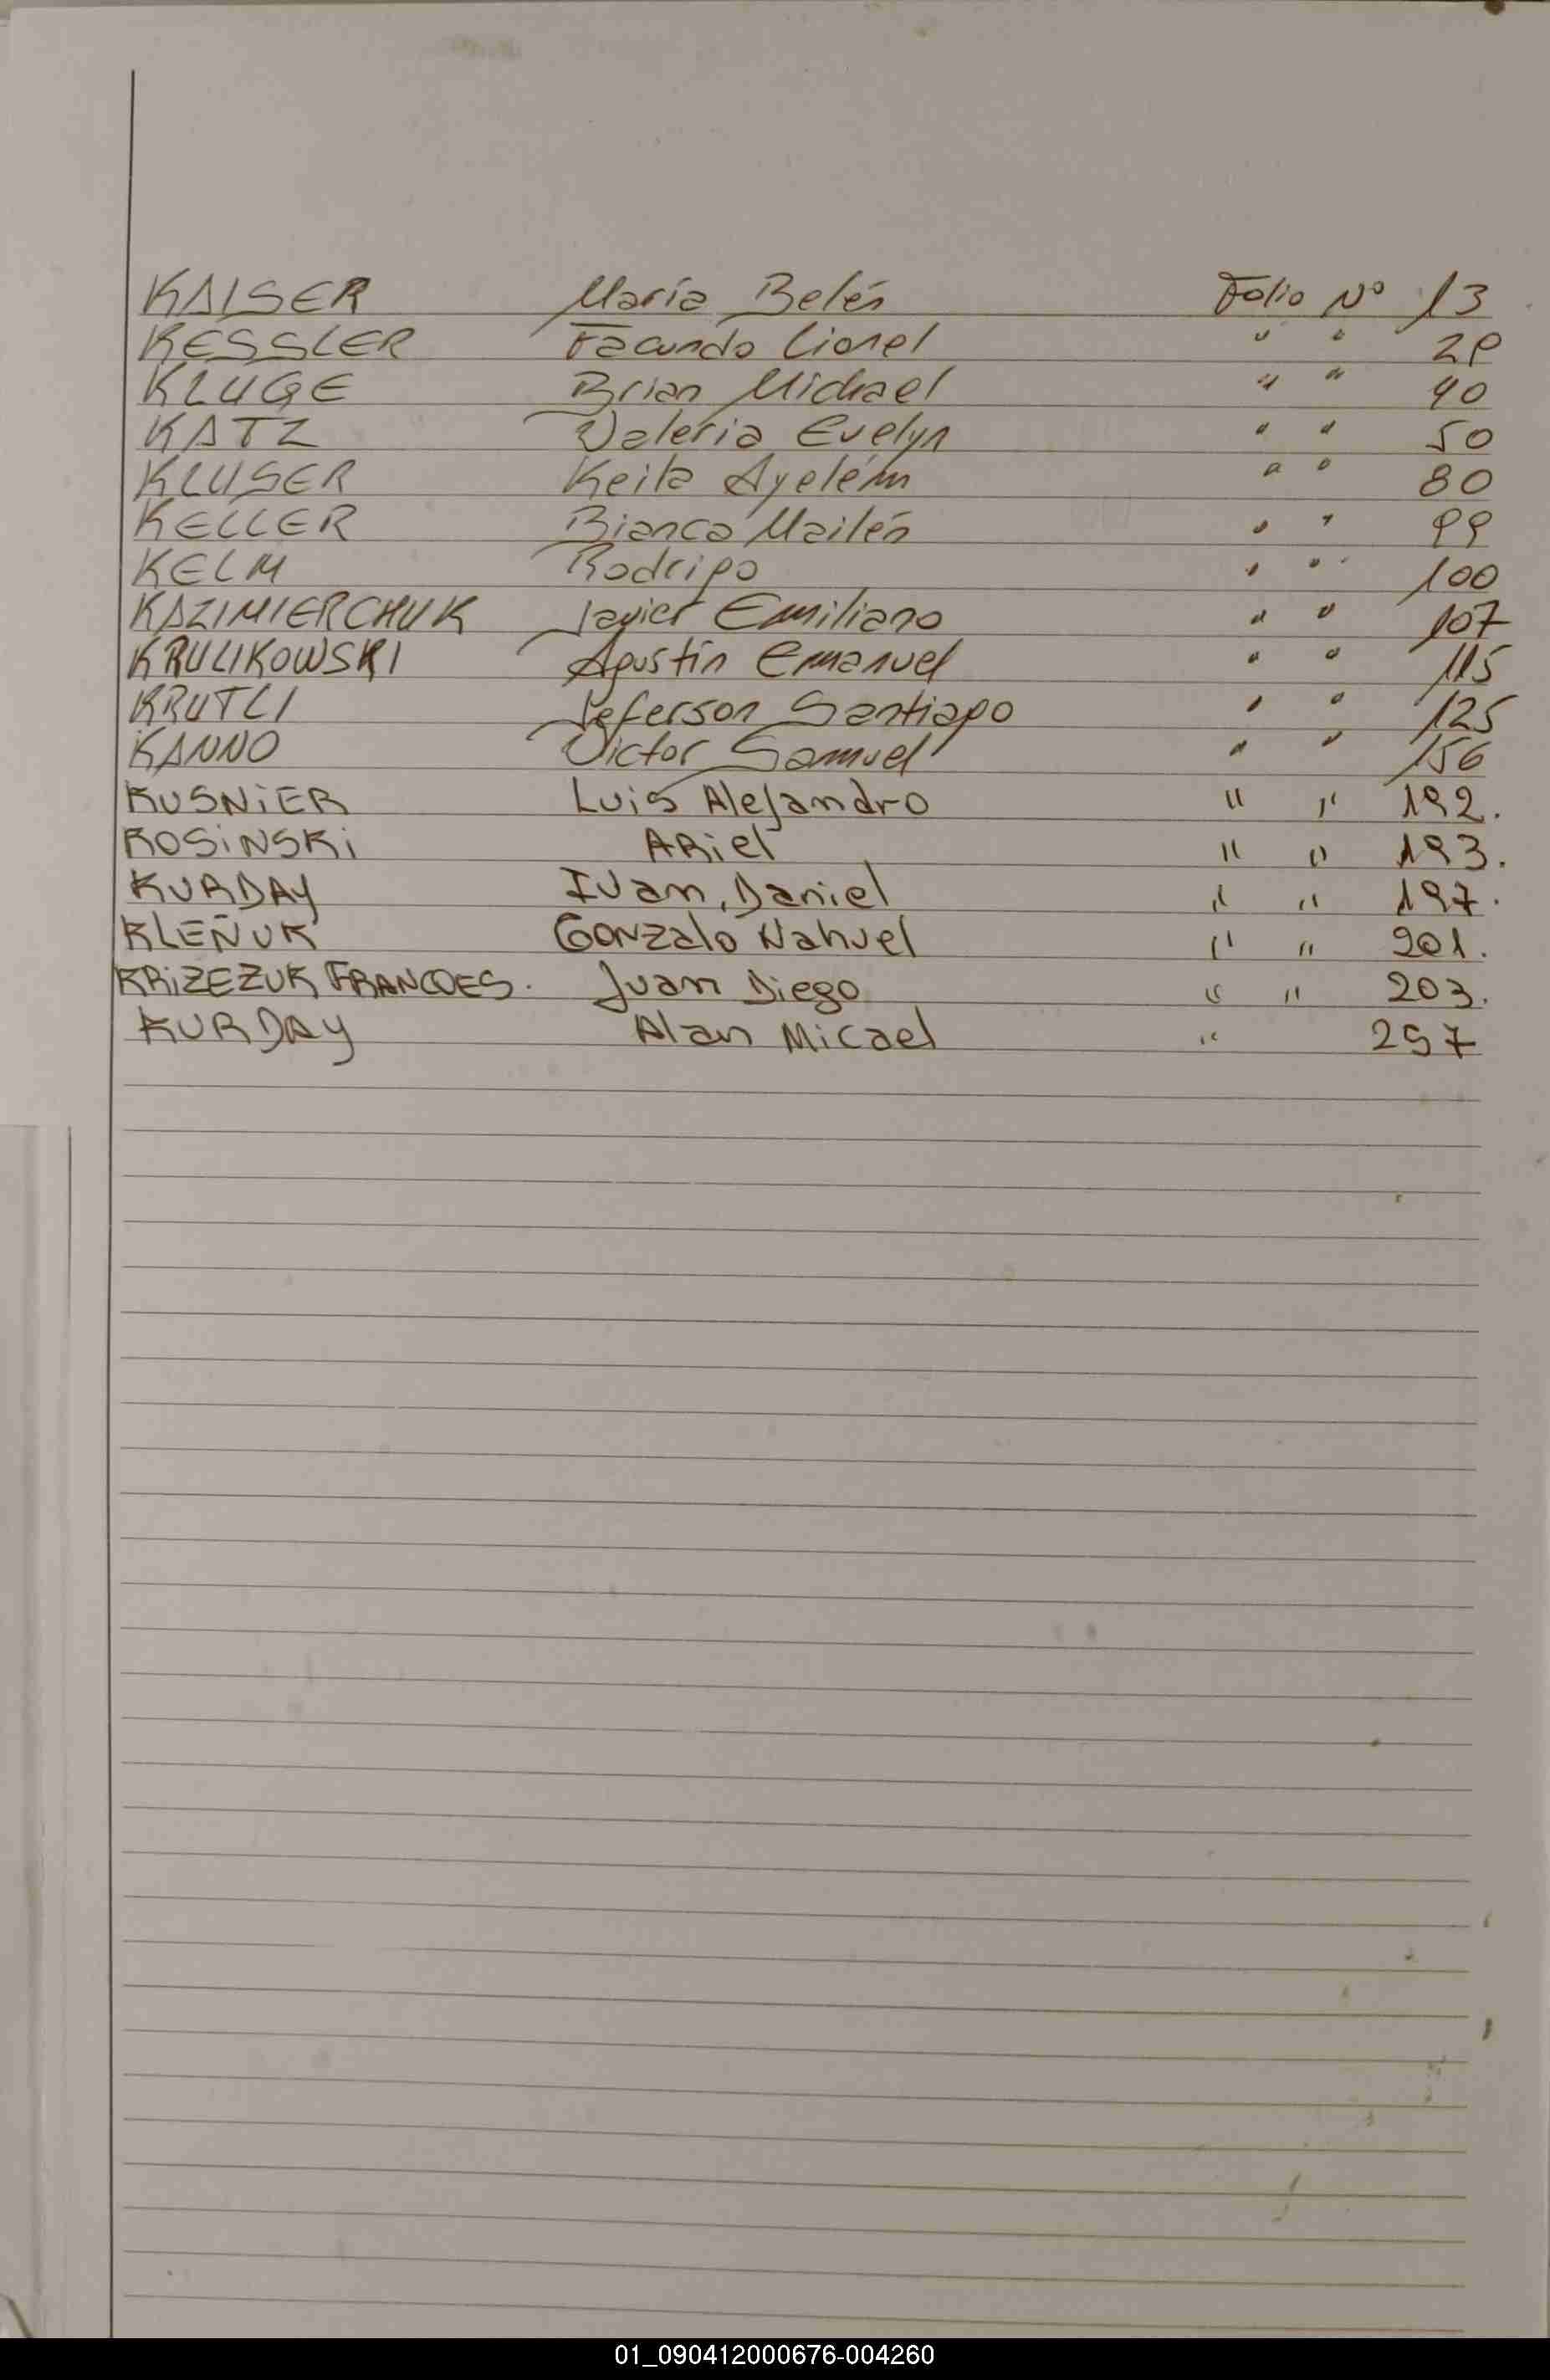 KAISER María Belén Folio Nº 13
KESSLER Facundo Lionel " " 29
KLUGE Brian Michael " " 40
KATZ Valeria Evelyn " " 50
KLUSER Keila Ayelém " " 80
KELLER Bianca Mailén " " 99
KELM Rodrigo " " 100
KAZIMIERCHUK Javier Emiliano " " 107
KRULIKOWSKI Agustín Emanuel " " 115
KRUTLI Jeferson Santiago " " 125
KANNO Victor Samuel " " 156
KUSNiER Luis Alejandro " " 192.
KOSiNSKi ARiel " " 193.
KURDAY Ivan, Daniel " " 197.
KLEÑUK Gonzalo Nahuel " " 201.
KRiZEZUK FRANCOES. Juan Diego " " 203.
KURDAY Alan Micael " 257
01_090412000676-004260